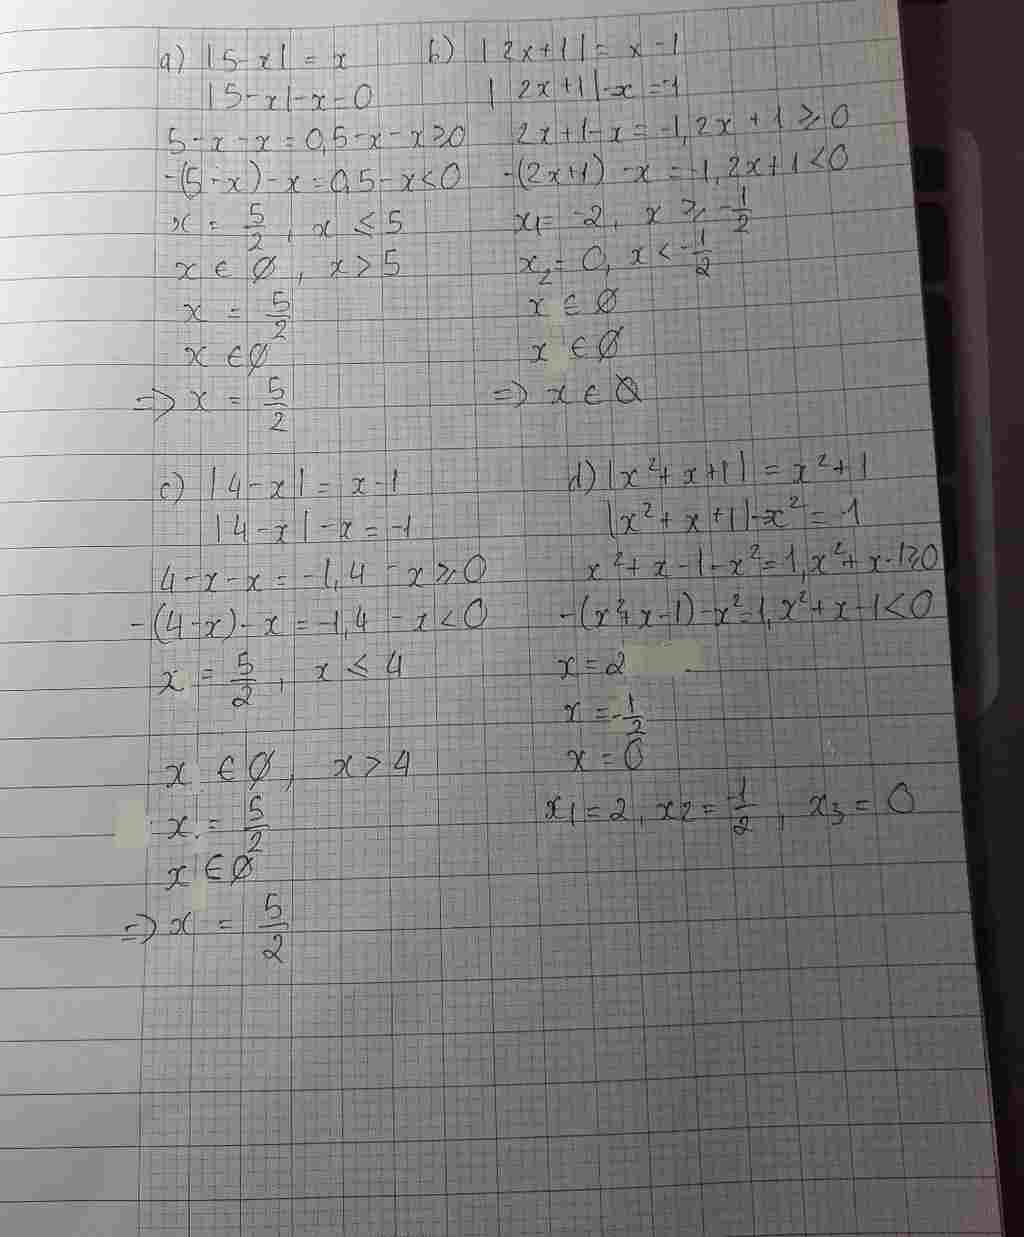 a) |5-x| = x
|5-x|-x=0
5-x-x=0,5-x-x≥0
-(5-x)-x=0,5-x<0
x = 5/2, x ≤ 5
x ∈ ∅, x > 5
x = 5/2
x ∈ ∅
=> x = 5/2
b) |2x+1| = x-1
|2x+1|-x=-1
2x+1-x=-1,2x+1≥0
-(2x+1)-x=-1,2x+1<0
x1=-2, x ≥ -1/2
x2=0, x < -1/2
x ∈ ∅
x ∈ ∅
=> x ∈ ∅
c) |4-x| = x-1
|4-x|-x=-1
4-x-x=-1,4-x≥0
-(4-x)-x=-1,4-x<0
x = 5/2, x ≤ 4
x ∈ ∅, x > 4
x = 5/2
x ∈ ∅
=> x = 5/2
d) |x²+x+1| = x²+1
|x²+x+1|-x²=1
x²+x-1-x²=1,x²+x-1≥0
-(x²+x-1)-x²=1,x²+x-1<0
x=2
x=-1/2
x=0
x1=2, x2=-1/2, x3=0